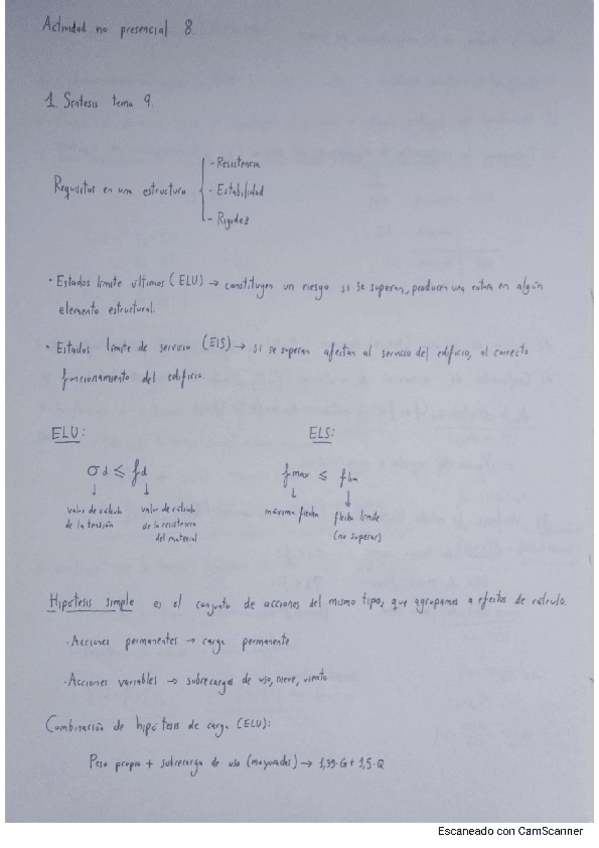 Actividad no presencial 8.
1. Síntesis tema 9.
Requisitos en una estructura
- Resistencia
- Estabilidad
- Rigidez
· Estados límite últimos (ELU) → constituyen un riesgo si se superan, producen una rotura en algún
elemento estructural.
· Estados límite de servicio (ElS) → si se superan afectan al servicio del edificio, al correcto
funcionamiento del edificio.
ELU: ELS:
σd ≤ fd
fmax ≤ flim
valor de cálculo
de la tensión
valor de cálculo
de la resistencia
del material
máxima flecha
flecha límite
(no superar)
Hipótesis simple es el conjunto de acciones del mismo tipo, que agrupamos a efectos de cálculo.
- Acciones permanentes → carga permanente
- Acciones variables → sobrecargas de uso, nieve, viento
Combinación de hipótesis de carga (ELU):
Peso propio + sobrecarga de uso (mayoradas) → 1,35·G + 1,5·Q
Escaneado con CamScanner